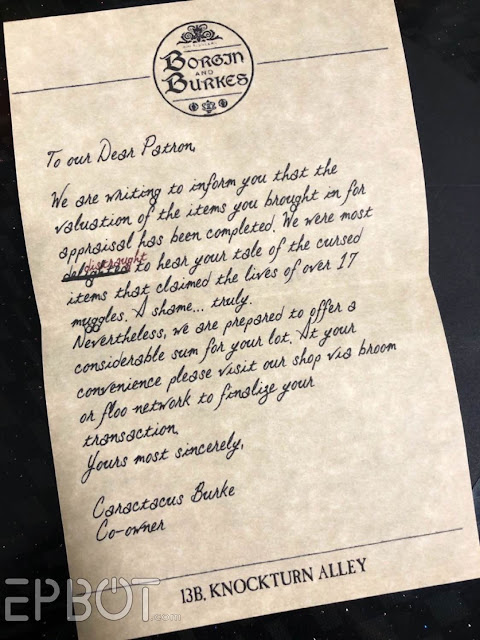 BORGIN
AND
BURKES
To our Dear Patron,
We are writing to inform you that the
valuation of the items you brought in for
appraisal has been completed. We were most
delighted distraught to hear your tale of the cursed
items that claimed the lives of over 17
muggles. A shame... truly.
Nevertheless, we are prepared to offer a
considerable sum for your lot. At your
convenience please visit our shop via broom
or floo network to finalize your
transaction.
Yours most sincerely,
Caractacus Burke
Co-owner
13B, KNOCKTURN ALLEY
EPBOT.com